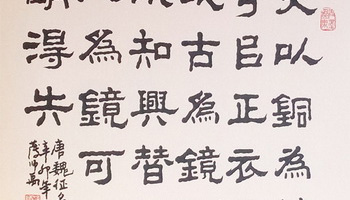 夫以銅為
可㠯正衣
以古為鏡
知興替
為鏡可
得失
唐魏征
辛卯年